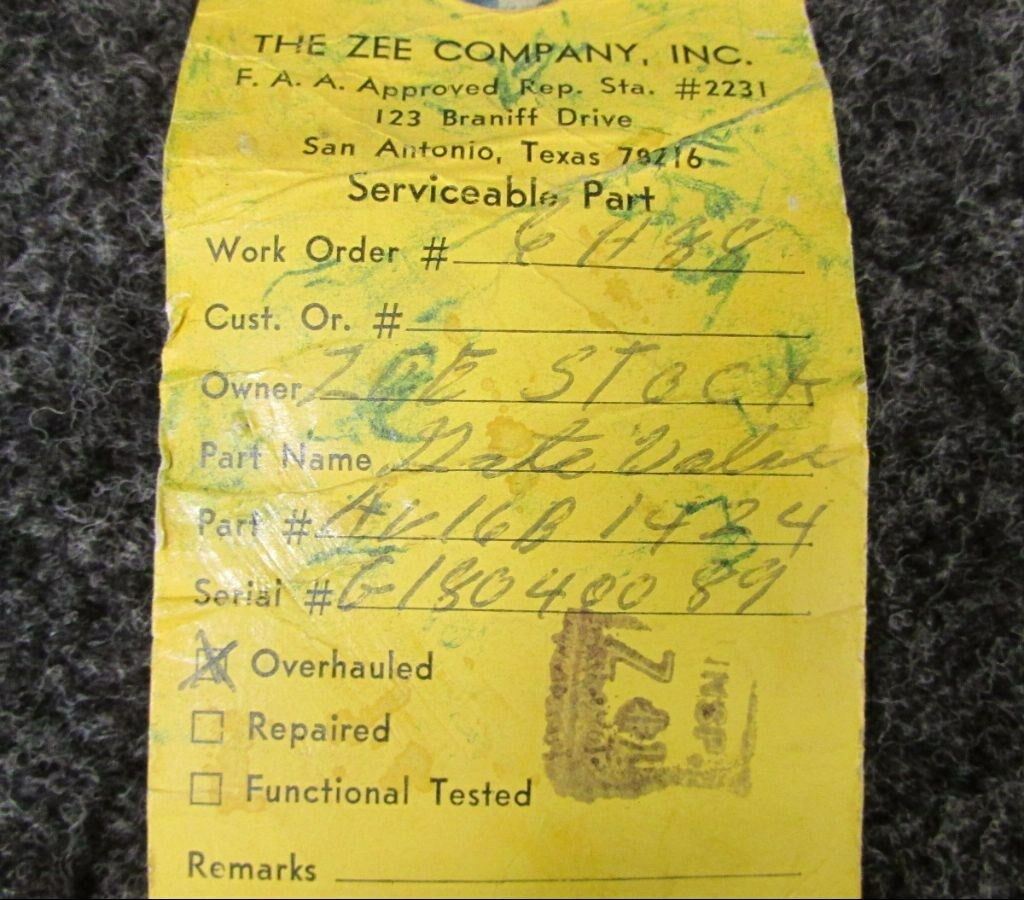 THE ZEE COMPANY, INC.
F. A. A. Approved Rep. Sta. #2231
123 Braniff Drive
San Antonio, Texas 78216
Serviceable Part
Work Order #
Cust. Or. #
Owner ZEE STOCK
Part Name Gate Valve
Part # AV16B 1424
Serial # G18040089
Overhauled
Repaired
Functional Tested
Remarks
INSP.
Z